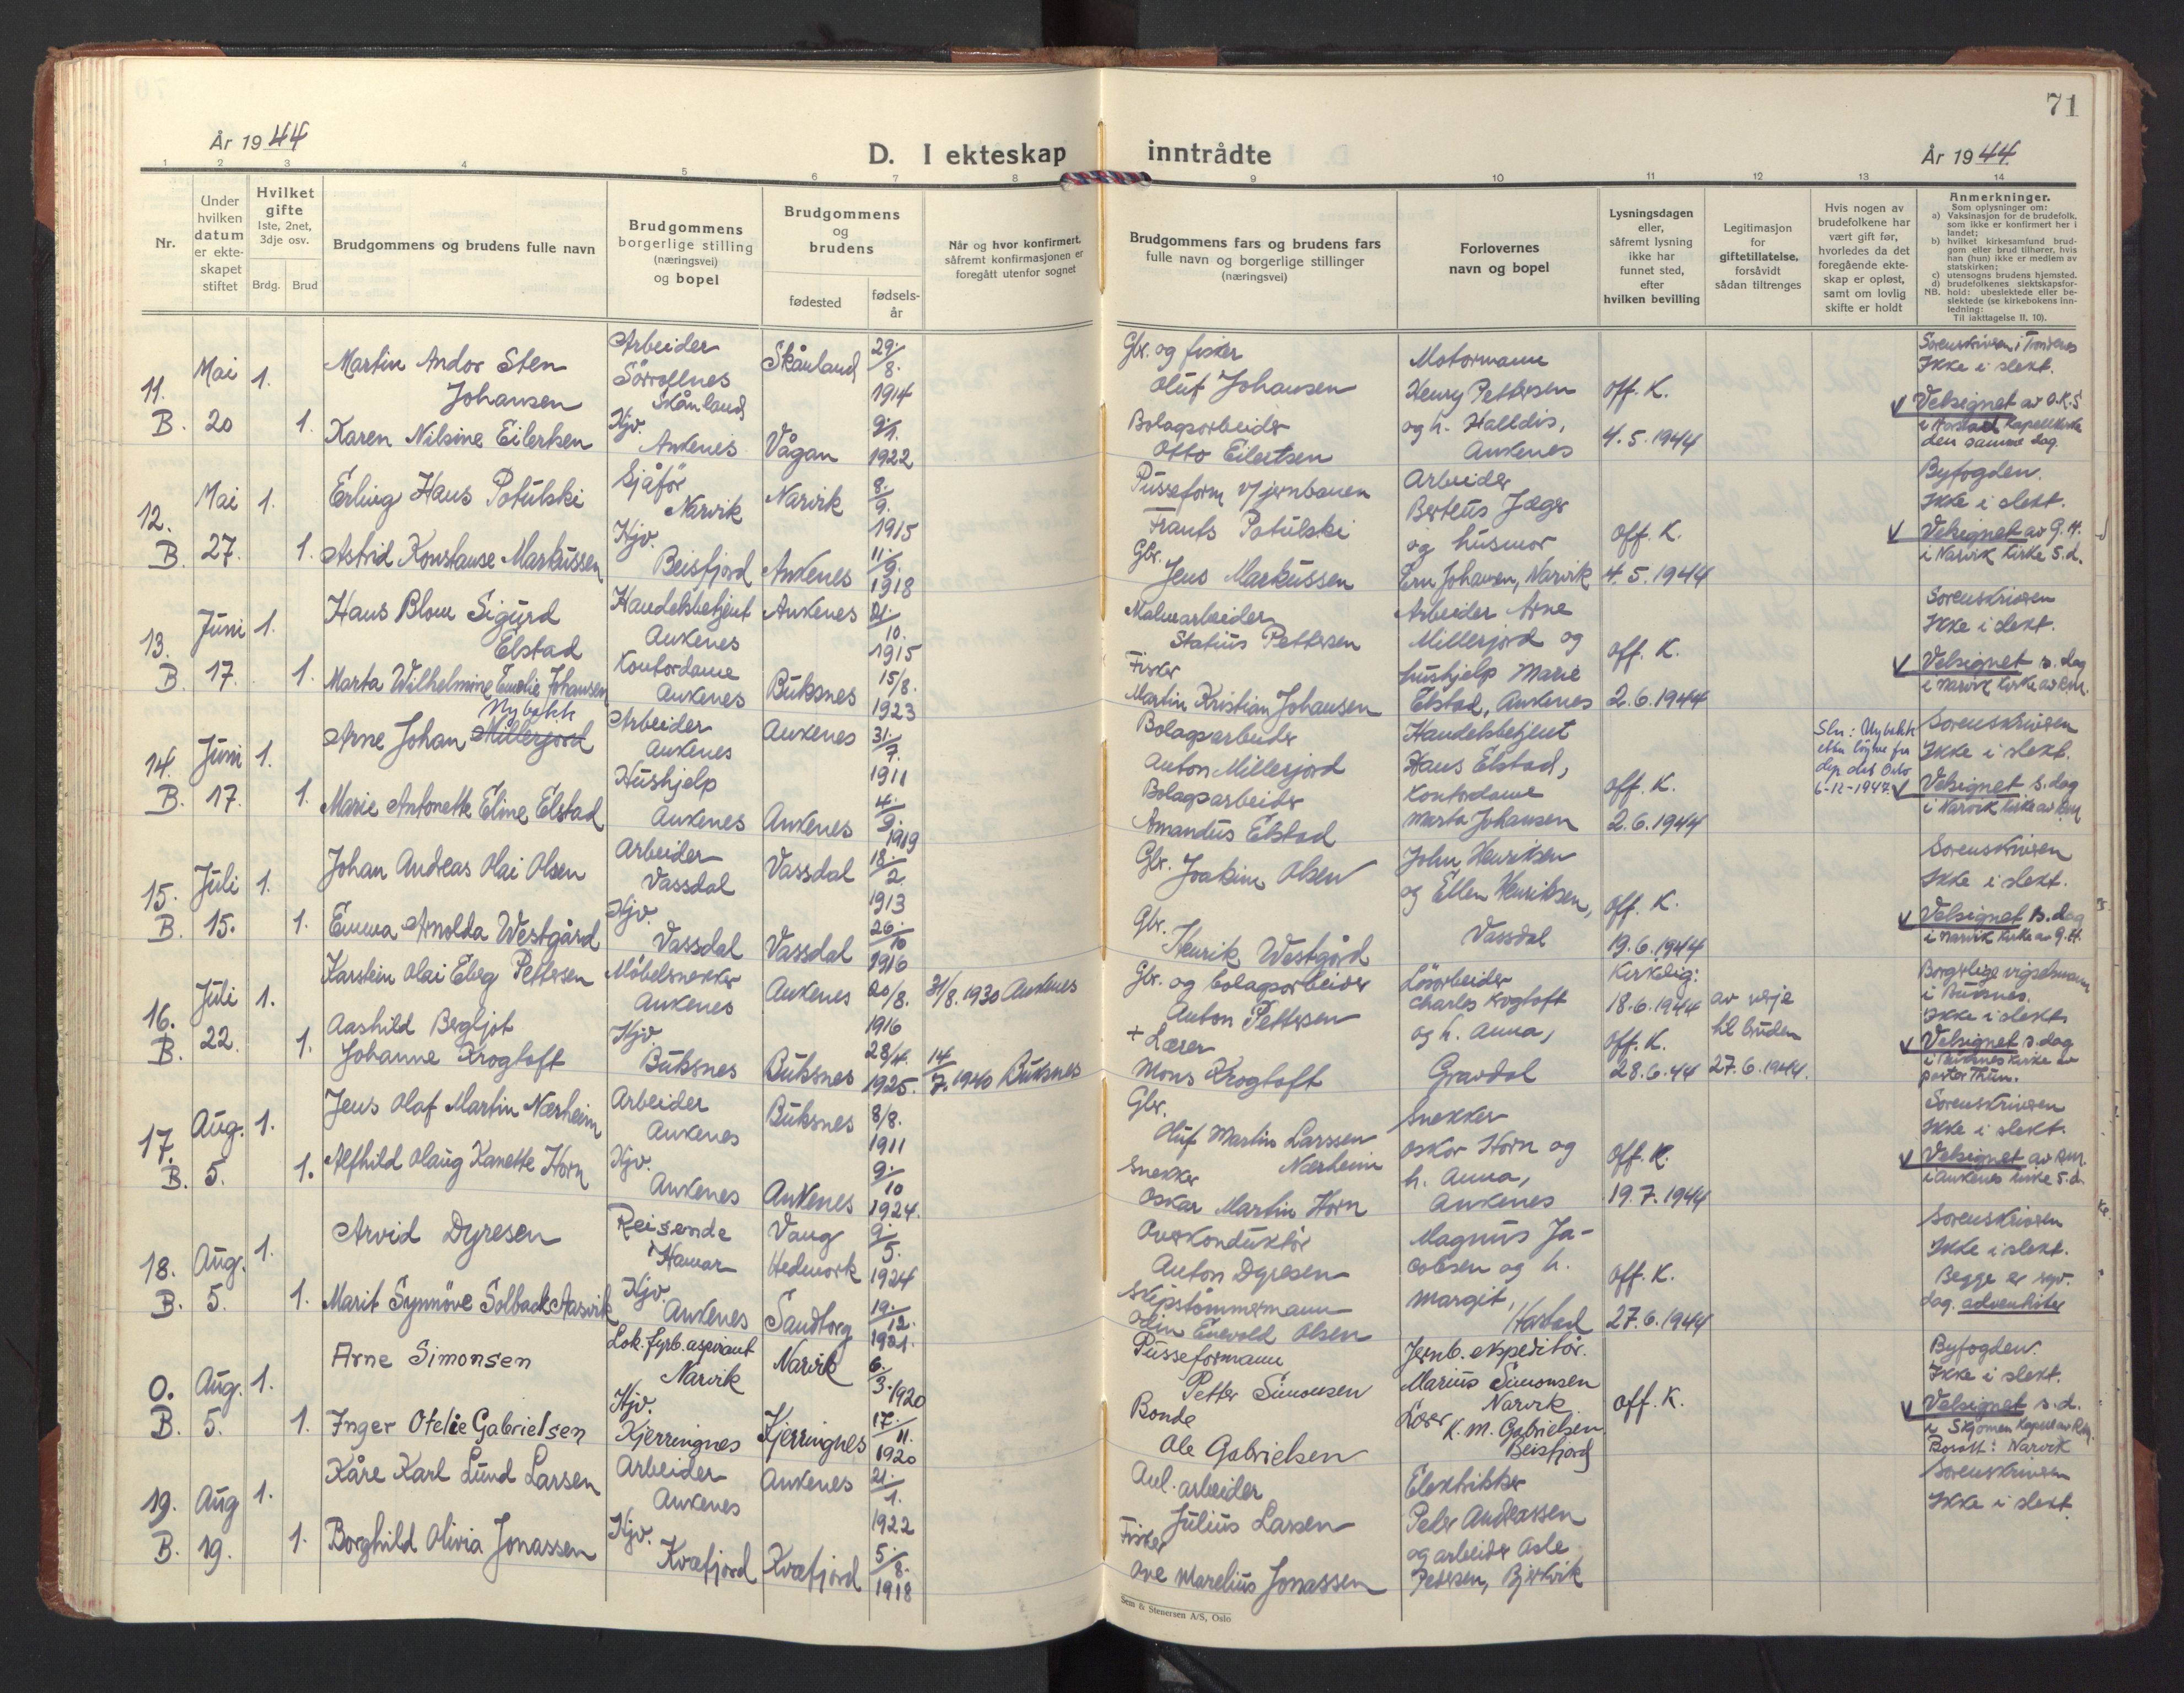 71
År 1944
D. I ekteskap inntrådte
År 1944
1 2 3 4 5 6 7 8 9 10 11 12 13 14
Nr.
Under
hvilken
datum
er ekte-
skapet
stiftet
Hvilket
gifte
1ste, 2net,
3dje osv.
Brdg. Brud
Brudgommens og brudens fulle navn
Brudgommens
borgerlige stilling
(næringsvei)
og bopel
Brudgommens
og
brudens
fødested
fødsels-
år
Når og hvor konfirmert,
såfremt konfirmasjonen er
foregått utenfor sognet
Brudgommens fars og brudens fars
fulle navn og borgerlige stillinger
(næringsvei)
Forlovernes
navn og bopel
Lysningsdagen
eller,
såfremt lysning
ikke har
funnet sted,
efter
hvilken bevilling
Legitimasjon
for
giftetillatelse,
forsåvidt
sådan tiltrenges
Hvis nogen av
brudefolkene har
vært gift før,
hvorledes da det
foregående ekte-
skap er opløst,
samt om lovlig
skifte er holdt
Anmerkninger.
Som oplysninger om:
a) Vaksinasjon for de brudefolk,
som ikke er konfirmert her i
landet;
b) hvilket kirkesamfund brud-
gom eller brud tilhører, hvis
han (hun) ikke er medlem av
statskirken;
c) utensogns brudens hjemsted.
d) brudefolkenes slektskapsfor-
NB. hold: ubeslektede eller be-
slektede (se kirkebokens inn-
ledning:
Til iakttagelse II, 10).
11.
B.
Mai
20
1.
1.
Martin Andor Sten
Johansen
Karen Nilsine Eilertsen
Arbeider
Sörrollnes
Skånland
Hjv.
Ankenes
Skånland
Vågan
29./8.
1914
9/1.
1922
Gbr. og fisker
Oluf Johansen
Bolagsarbeider
Otto Eilertsen
Motormann
Henry Pettersen
og h. Halldis,
Ankenes
Off. K.
4.5.1944
Sorenskriveren i Trondenes
Ikke i slekt.
Velsignet av O.K.S
i Harstad Kapellkirke
den samme dag
12.
B.
Mai
27.
1.
1.
Erling Hans Potulski
Astrid Konstanse Markussen
Sjåför
Narvik
Hjv.
Beisfjord
Narvik
Ankenes
8./9.
1915
11./9.
1918
Pusseform. v/jernbanen
Frants Potulski
Gbr.
Jens Markussen
Arbeider
Berteus Jæger
og husmor
Ern Johansen, Narvik
Off. K.
4.5.1944
Byfogden.
Ikke i slekt.
Velsignet av G.H.
i Narvik Kirke s.d.
13.
B.
Juni
17.
1.
1.
Hans Blom Sigurd
Elstad
Marta Wilhelmine Emelie Johansen
Handelsbetjent
Ankenes
Kontordame
Ankenes
Ankenes
Buksnes
21./10.
1915
15/8.
1923
Malmarbeider
Statius Pettersen
Fisker
Martin Kristian Johansen
Arbeider Arne
Millerjord og
hushjelp Marie
Elstad, Ankenes
Off. K.
2.6.1944
Sorenskriveren
Ikke i slekt.
Velsignet s. dag
i Narvik Kirke av R.M.
14.
B.
Juni
17.
1.
1.
Nybakk
Arne Johan Millerjord
Marie Antonette Eline Elstad
Arbeider
Ankenes
Hushjelp
Ankenes
Ankenes
Ankenes
31./7.
1911
4./9.
1919
Bolagsarbeider
Anton Millerjord
Bolagsarbeider
Amandus Elstad
Handelsbetjent
Hans Elstad,
Kontordame
Marta Johansen
Off. K.
2.6.1944
Sln: Nybakk
dep det Oslo
6-12-1947.
Sorenskriveren
Ikke i slekt.
Velsignet s. dag
i Narvik Kirke av R.M.
15.
B.
Juli
15.
1.
1.
Johan Andreas Olai Olsen
Emma Arnolda Westgård
Arbeider
Vassdal
Hjv.
Vassdal
Vassdal
Vassdal
18./2.
1913
26./10
1916
Gbr. Joakim Olsen
Gbr.
Henrik Westgård
John Henriksen
og Ellen Henriksen,
Vassdal
Off. K.
19.6.1944
Sorenskriveren
Ikke i slekt.
Velsignet s. dag
i Narvik Kirke av G.H.
16.
B.
Juli
22.
1.
1.
Karstein Olai Eberg Pettersen
Aashild Bergljot
Johanne Krogtoft
Möbelsnekker
Ankenes
Hjv.
Buksnes
Ankenes
Buksnes
20/8.
1916
28/4.
1925.
31/8.1930 Ankenes
14/7.1940 Buksnes
Gbr. og bolagsarbeider
Anton Pettersen
+ Lærer
Mons Krogtoft
Lösarbeider
Charles Krogtoft
og h. Anna,
Gravdal
Kirkelig:
18.6.1944
Off. K.
28.6.44
av verje
til bruden
27.6.1944.
Borgerlige vigselsmann
i Buksnes.
Ikke i slekt.
Velsignet s. dag
i Buksnes Kirke av
pastor Thun.
17.
B.
Aug.
5.
1.
1.
Jens Olaf Martin Nærheim
Alfhild Olaug Kanette Horn
Arbeider
Ankenes
Hjv.
Ankenes
Buksnes
Ankenes
8/8.
1911
9./10
1924.
Gbr.
Oluf Martin Larssen
Nærheim
Snekker
Oskar Martin Horn
Snekker
Oskar Horn og
h. Anna,
Ankenes
Off. K.
19.7.1944
Sorenskriveren
Ikke i slekt.
Velsignet av R.M.
i Ankenes Kirke s.d.
18.
B.
Aug.
5.
1.
1.
Arvid Dyresen
Marit Synnöve Solbakk Aasvik
Reisende
Hamar
Hjv.
Ankenes
Vang
Hedmork
Sandtorg
9./5.
1924
19./12.
1921.
Overkonduktör
Anton Dyresen
Skipstömmermann
Odin Enevold Olsen
Magnus Ja-
cobsen og h.
Margit,
Harstad
Off. K.
27.6.1944
Sorenskriveren
Ikke i slekt.
Begge er syv.
dag. adventister
O.
B.
Aug.
5.
1.
1.
Arne Simonsen
Inger Otelie Gabrielsen
Lok. fyrb. aspirant
Narvik
Hjv.
Kjerringnes
Narvik
Kjerringnes
6./3.1920
17./11.
1920
Pusseformann
Petter Simonsen
Bonde
Ole Gabrielsen
Jernb. ekspeditör.
Marius Simonsen
Narvik.
Lærer K. M. Gabrielsen
Beisfjord
Off. K.
Byfogden.
Ikke i slekt.
Velsignet s.d.
i Skjomen Kapell av R.M.
Bosatt: Narvik
19.
B.
Aug
19.
1.
1.
Kåre Karl Lund Larsen
Borghild Olivia Jonassen
Arbeider
Ankenes
Hjv.
Kvæfjord
Ankenes
Kvæfjord
21./1.
1922
5./8.
1918
Anl. arbeider
Julius Larsen
Fisker
Ove Marelius Jonassen
Elektriker
Peder Andreassen
og arbeider Asle
Petersen, Bjerkvik
Sorenskriveren
Ikke i slekt.
Sem & Stenersen A/S, Oslo